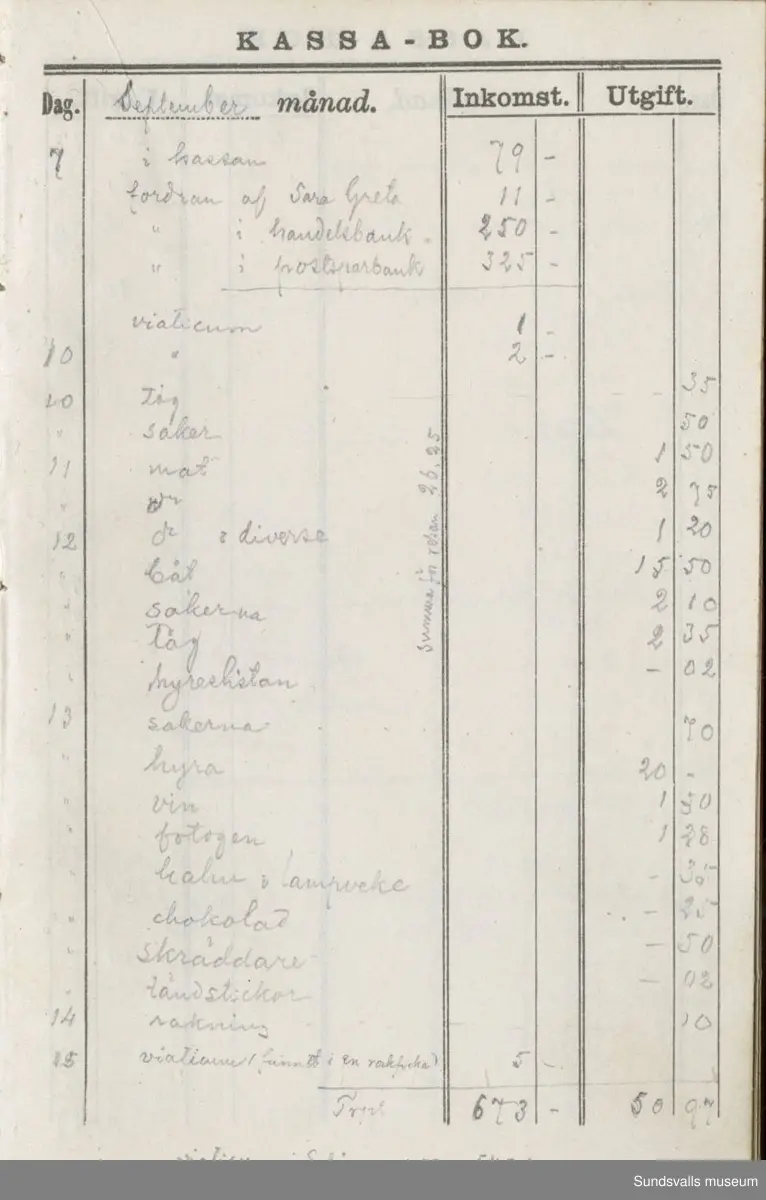 KASSA-BOK.
Dag. September månad. Inkomst. Utgift.
7 i kassan 79 -
fordran af Sara Greta 11 -
" i handelsbank 250 -
" i postsparbank 325 -
viaticum 1 -
10 " 2 -
10 Tåg - 35
" saker 50
11 mat 1 50
" do 2 75
12 do & diverse 1 20
" båt 15 50
" sakerna 2 10
" Tåg 2 35
" hyreslistan - 02
13 sakerna 70
" hyra 20 -
" vin 1 50
" fotogen 1 28
" halm & lampveke - 35
" chokolad - 25
" skräddare - 50
" tändstickor - 02
14 rakning 10
15 viaticum (funnet i en rockficka) 5 -
Trpt 673 - 50 97
Summa för resan 26,25
Sundsvalls museum